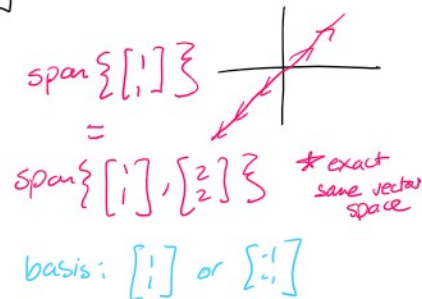 span{[1 1]}
=
span{[1 1], [2 2]} * exact
same vector
space
basis: [1 1] or [-1 -1]